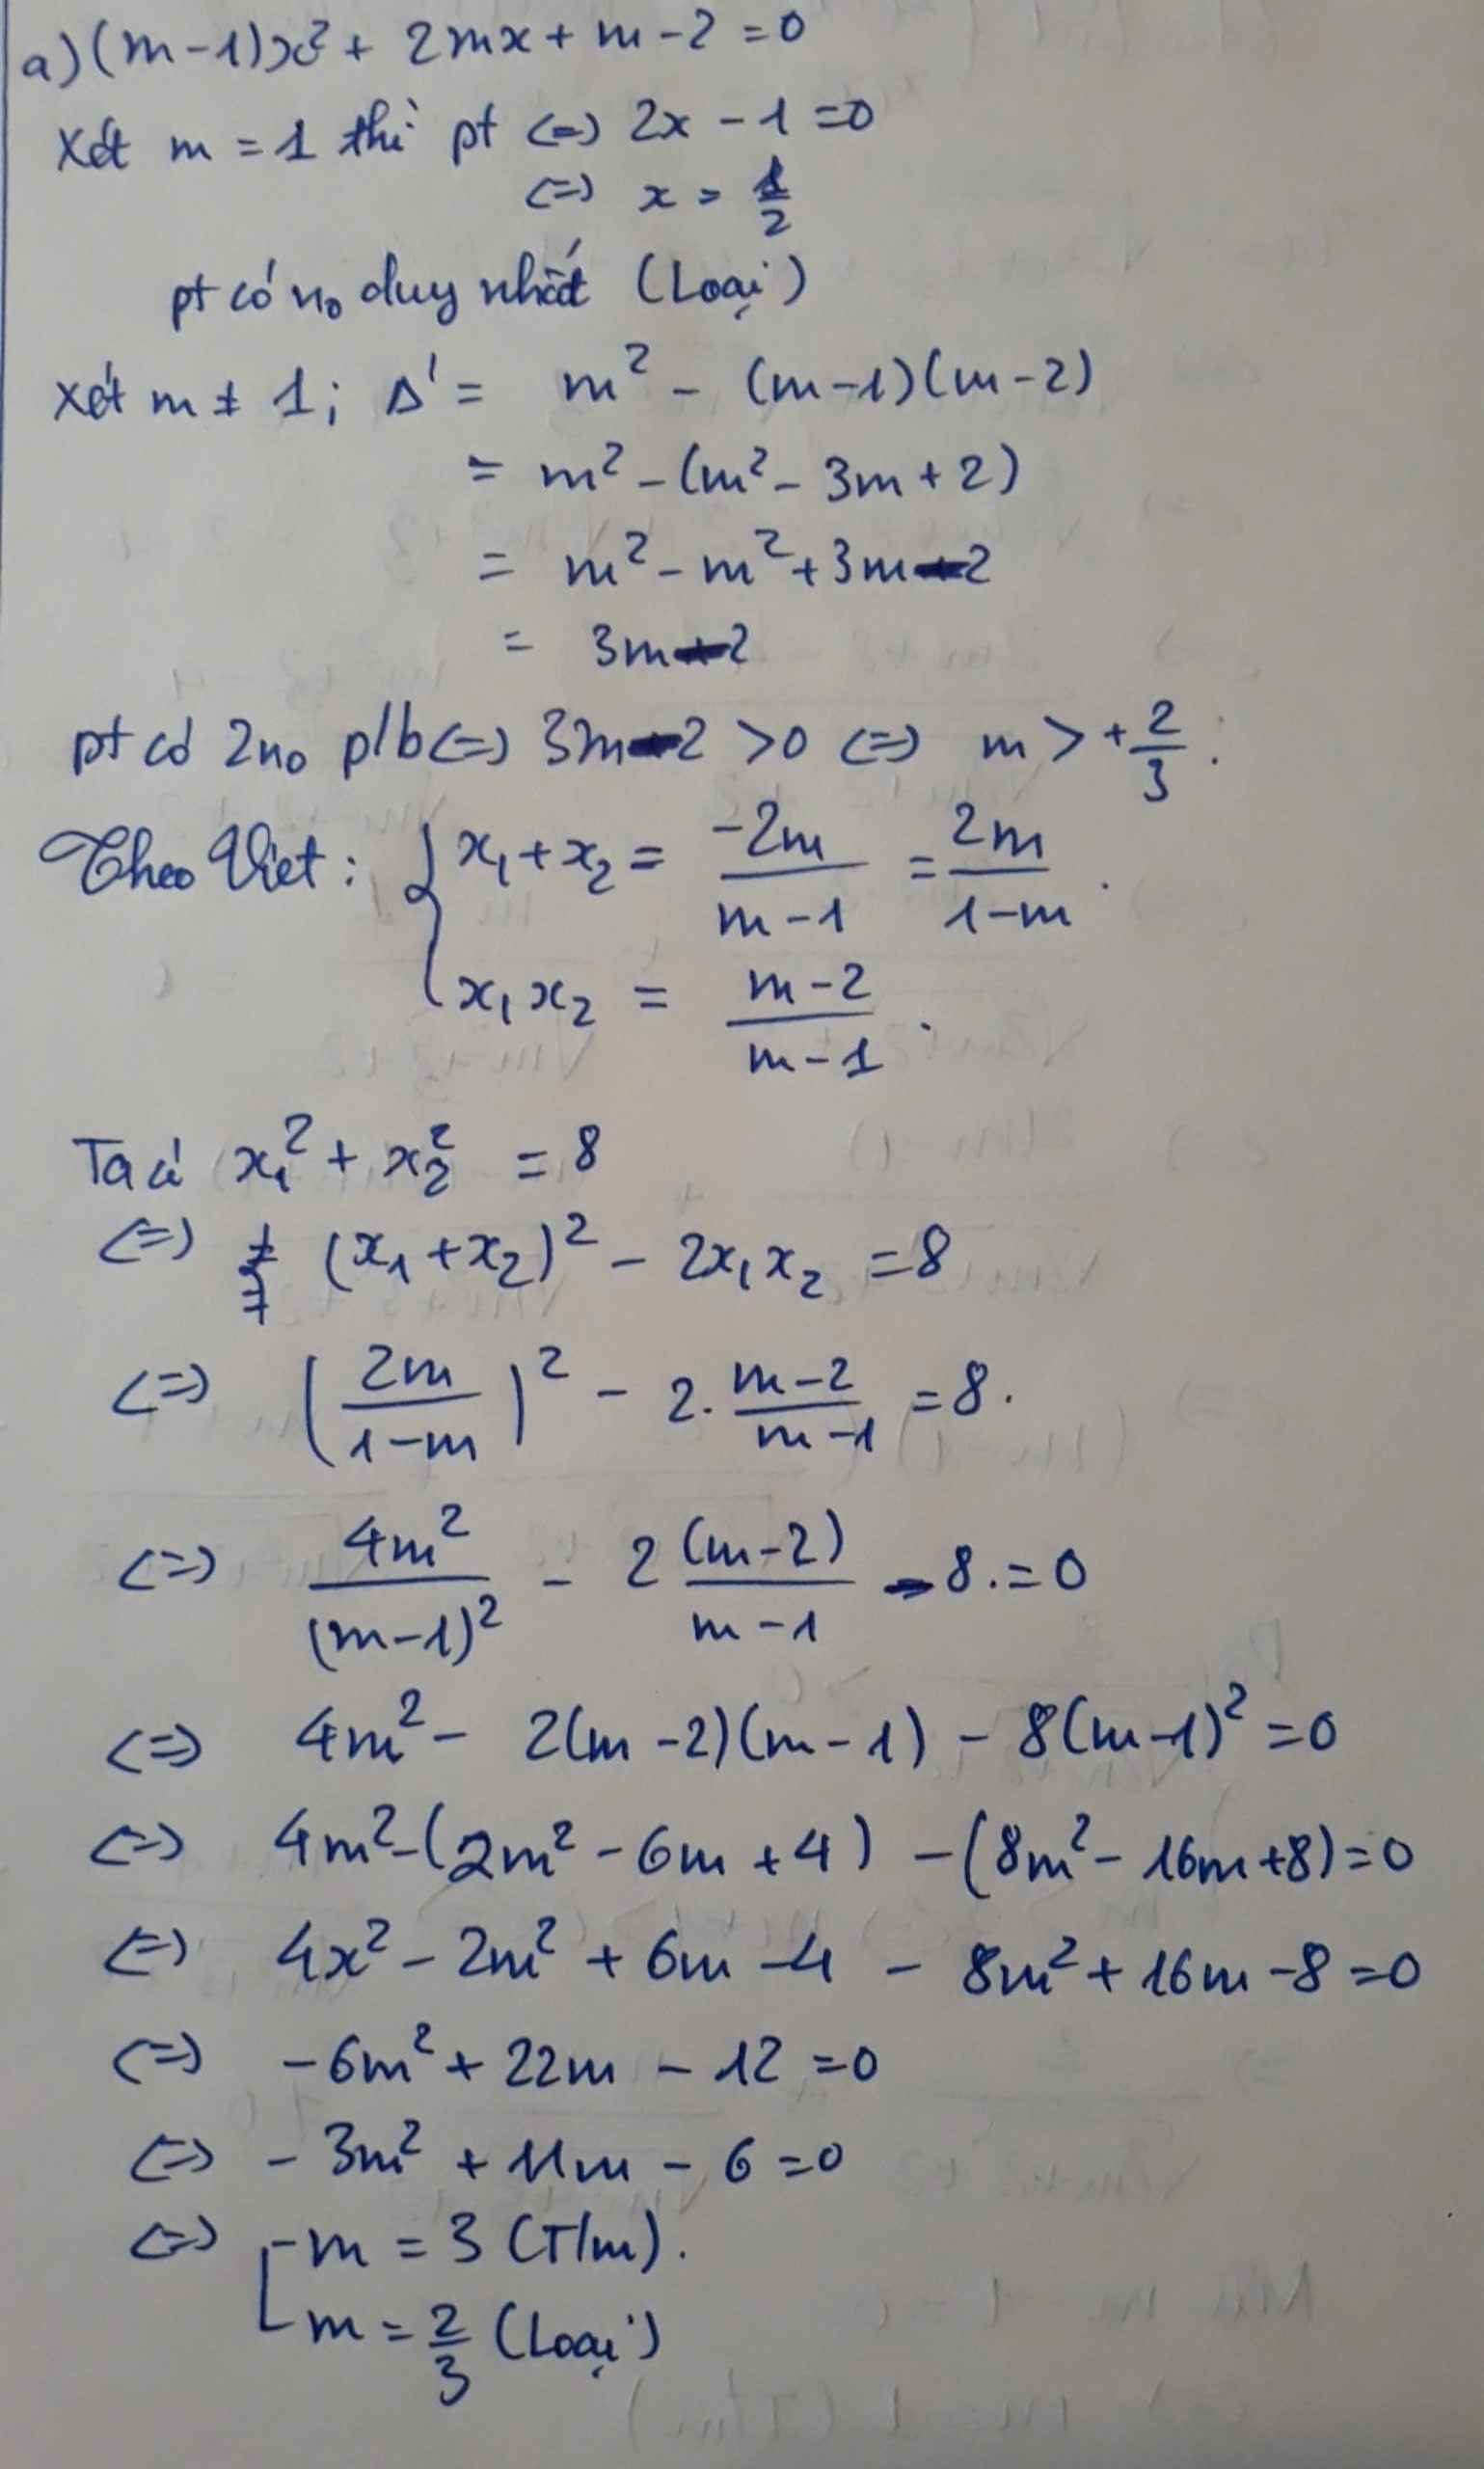 a) (m-1)x² + 2mx + m-2 = 0
Xét m = 1 thì pt <=> 2x - 1 = 0
<=> x = 1/2
pt có no duy nhất (Loại)
xét m ≠ 1; Δ' = m² - (m-1)(m-2)
= m² - (m² - 3m + 2)
= m² - m² + 3m - 2
= 3m - 2
pt có 2no p/b <=> 3m - 2 > 0 <=> m > + 2/3.
Theo Viet: { x₁ + x₂ = -2m/(m-1) = 2m/(1-m).
x₁x₂ = (m-2)/(m-1).
Ta có x₁² + x₂² = 8
<=> (x₁ + x₂)² - 2x₁x₂ = 8
<=> (2m/(1-m))² - 2. (m-2)/(m-1) = 8.
<=> 4m²/(m-1)² - 2 (m-2)/(m-1) - 8. = 0
<=> 4m² - 2(m-2)(m-1) - 8(m-1)² = 0
<=> 4m² - (2m² - 6m + 4) - (8m² - 16m + 8) = 0
<=> 4x² - 2m² + 6m - 4 - 8m² + 16m - 8 = 0
<=> - 6m² + 22m - 12 = 0
<=> - 3m² + 11m - 6 = 0
<=> [ m = 3 (T/m).
m = 2/3 (Loại)